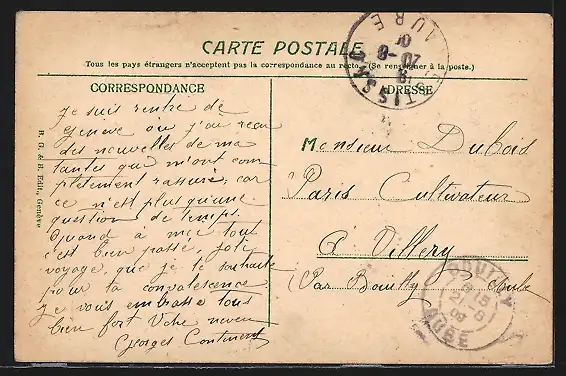 CARTE POSTALE
Tous les pays étrangers n'acceptent pas la correspondance au recto. (Se renseigner à la poste.)
CORRESPONDANCE
ADRESSE
B. G. & B. Edit., Genève
Je suis rentré de
Genève où j'ai reçu
des nouvelles de ma
tantes qui m'ont com
plètement rassuré, car
ce n'est plus qu'une
question de temps.
Quand à moi tout
c'est bien passé, joli
voyage, que je le souhaite
pour la convalescence
Je vous embrasse tous
bien fort Votre neveu
Georges
Monsieur Dubois
Paris Cultivateur
à Villery
(Par Bouilly Aube
BOUILLY
21 8
08
AUBE
AUBE